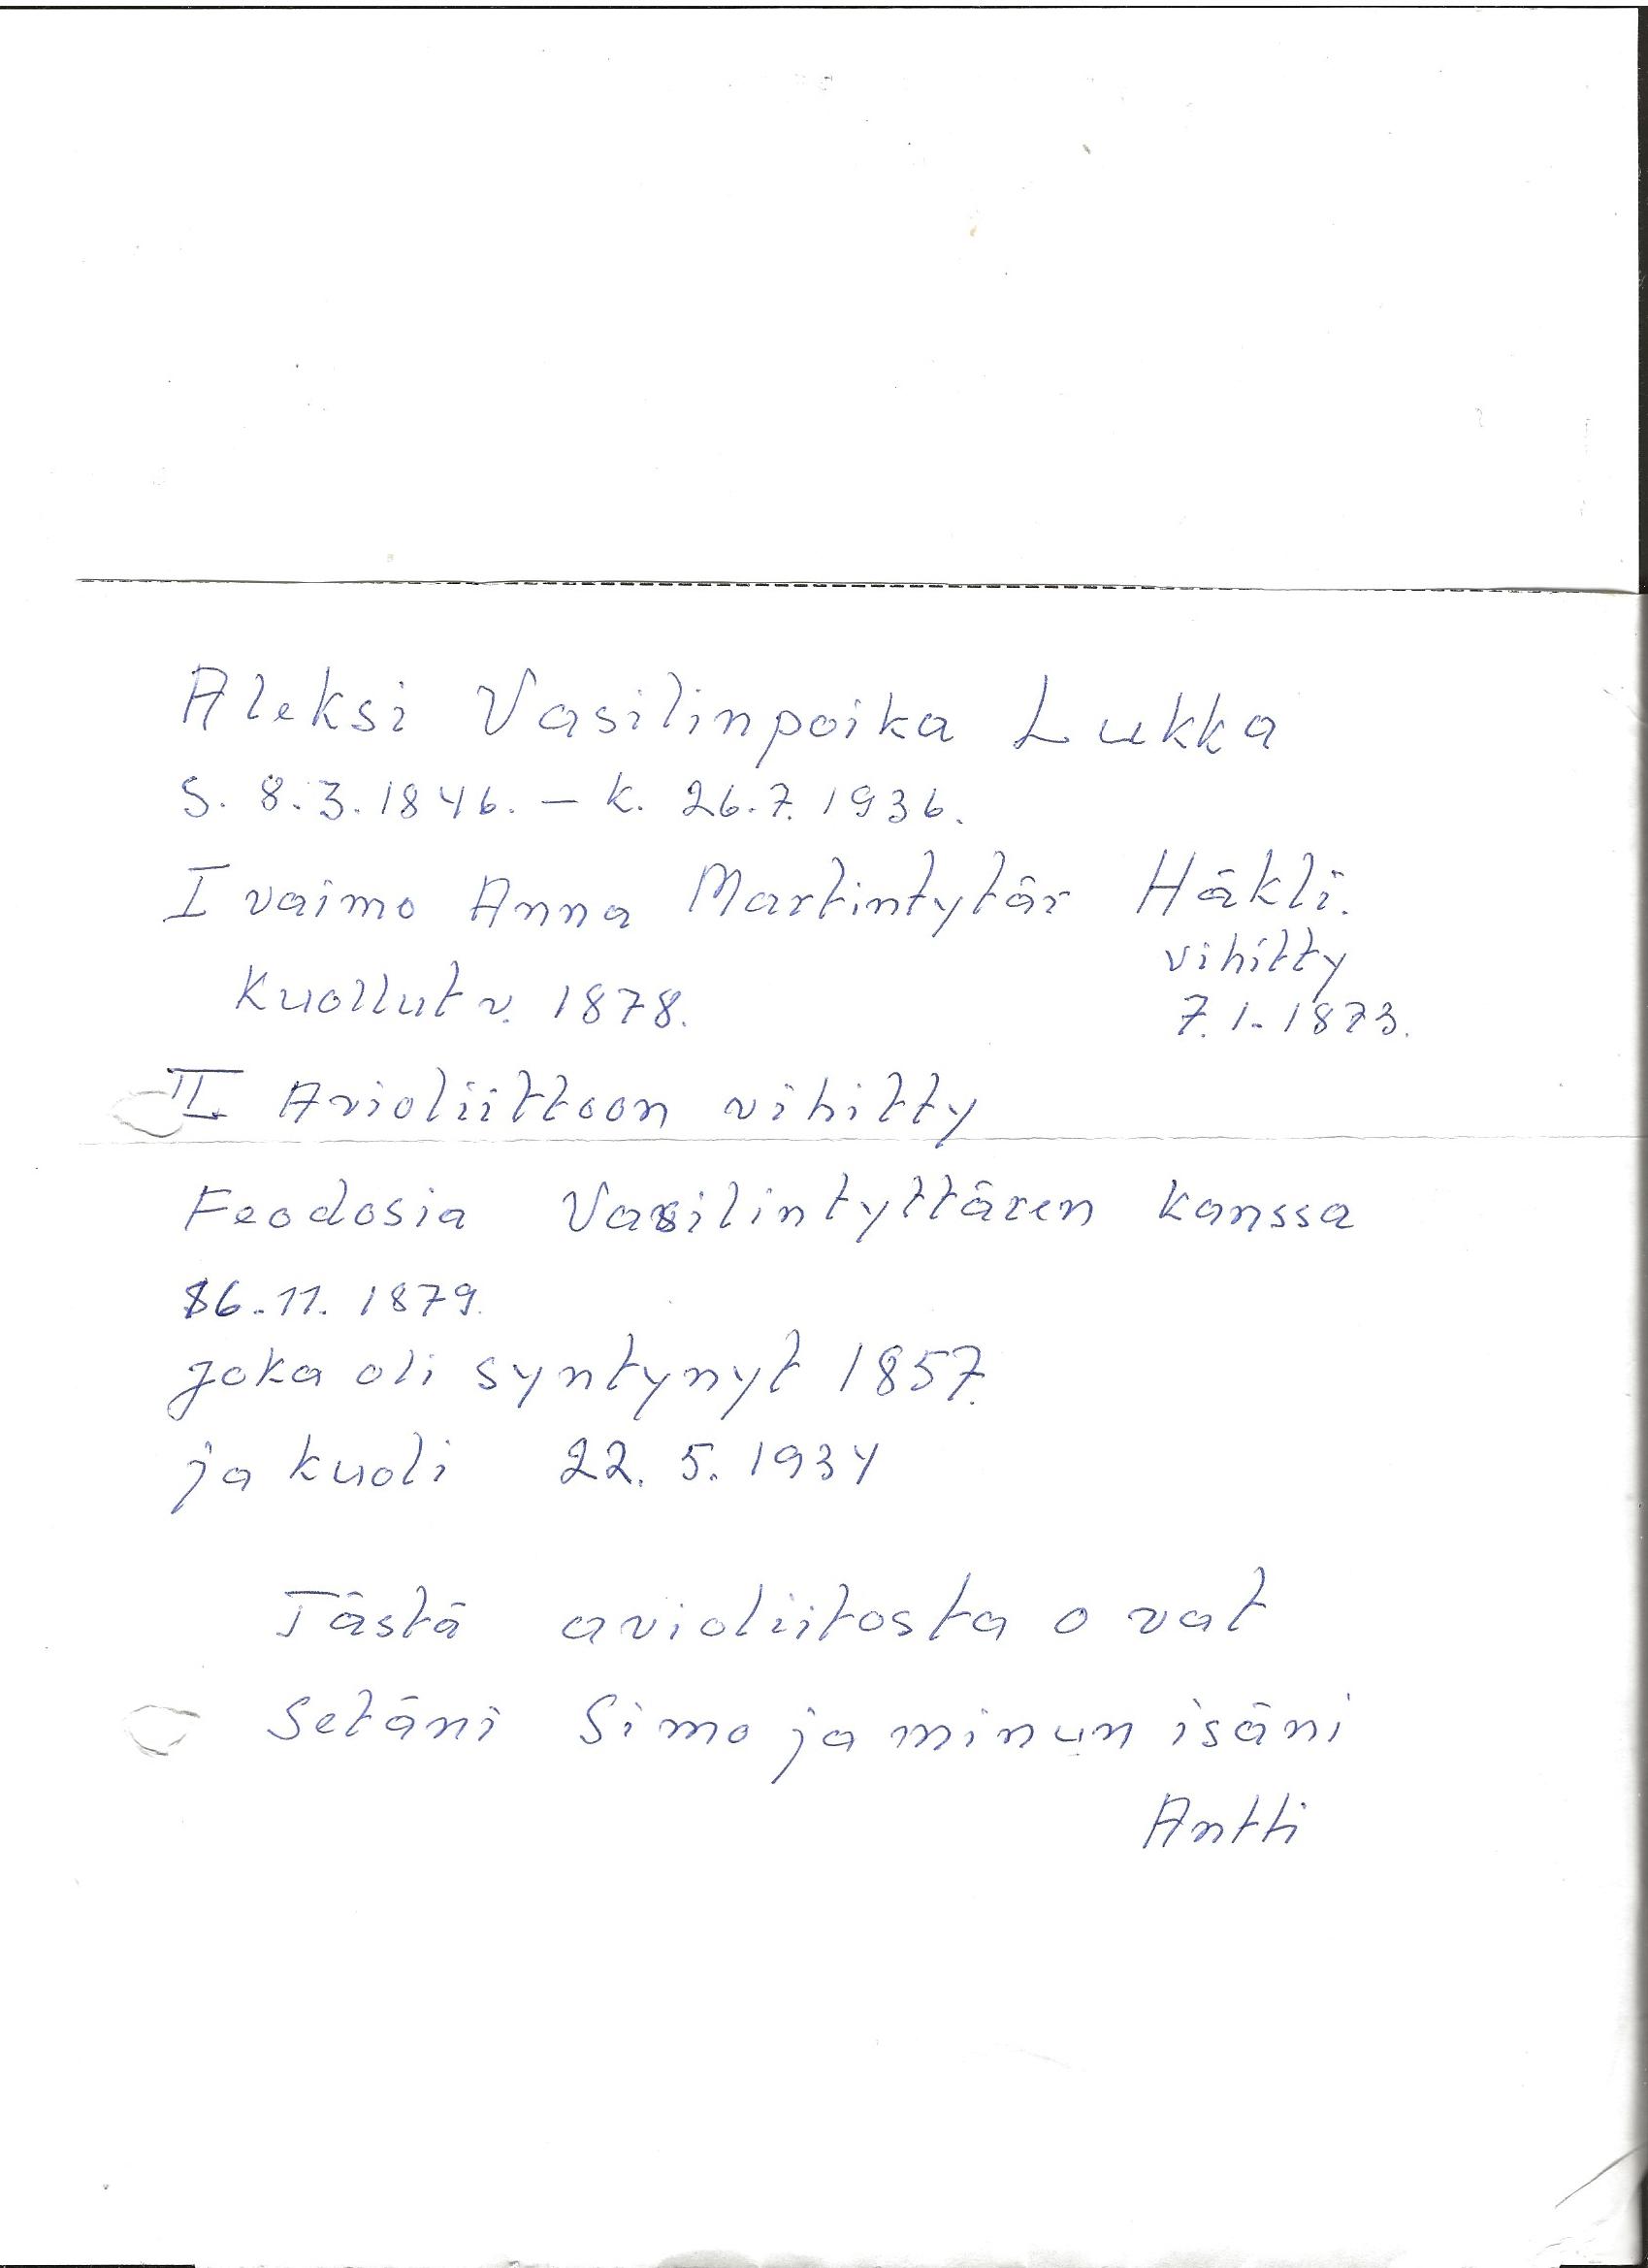 Aleksi Vasilinpoika Lukka
S. 8.3.1846. – K. 26.7.1936.
I vaimo Anna Martintytär Häkli.
vihitty
Kuollut v. 1878.
7.1.1873.
II Avioliittoon vihitty
Feodosia Vasilintyttären kanssa
11.1879.
Joka oli syntynyt 1857.
ja kuoli 22.5.1934
Tästä avioliitosta ovat
Setäni Simo ja minun isäni
Antti